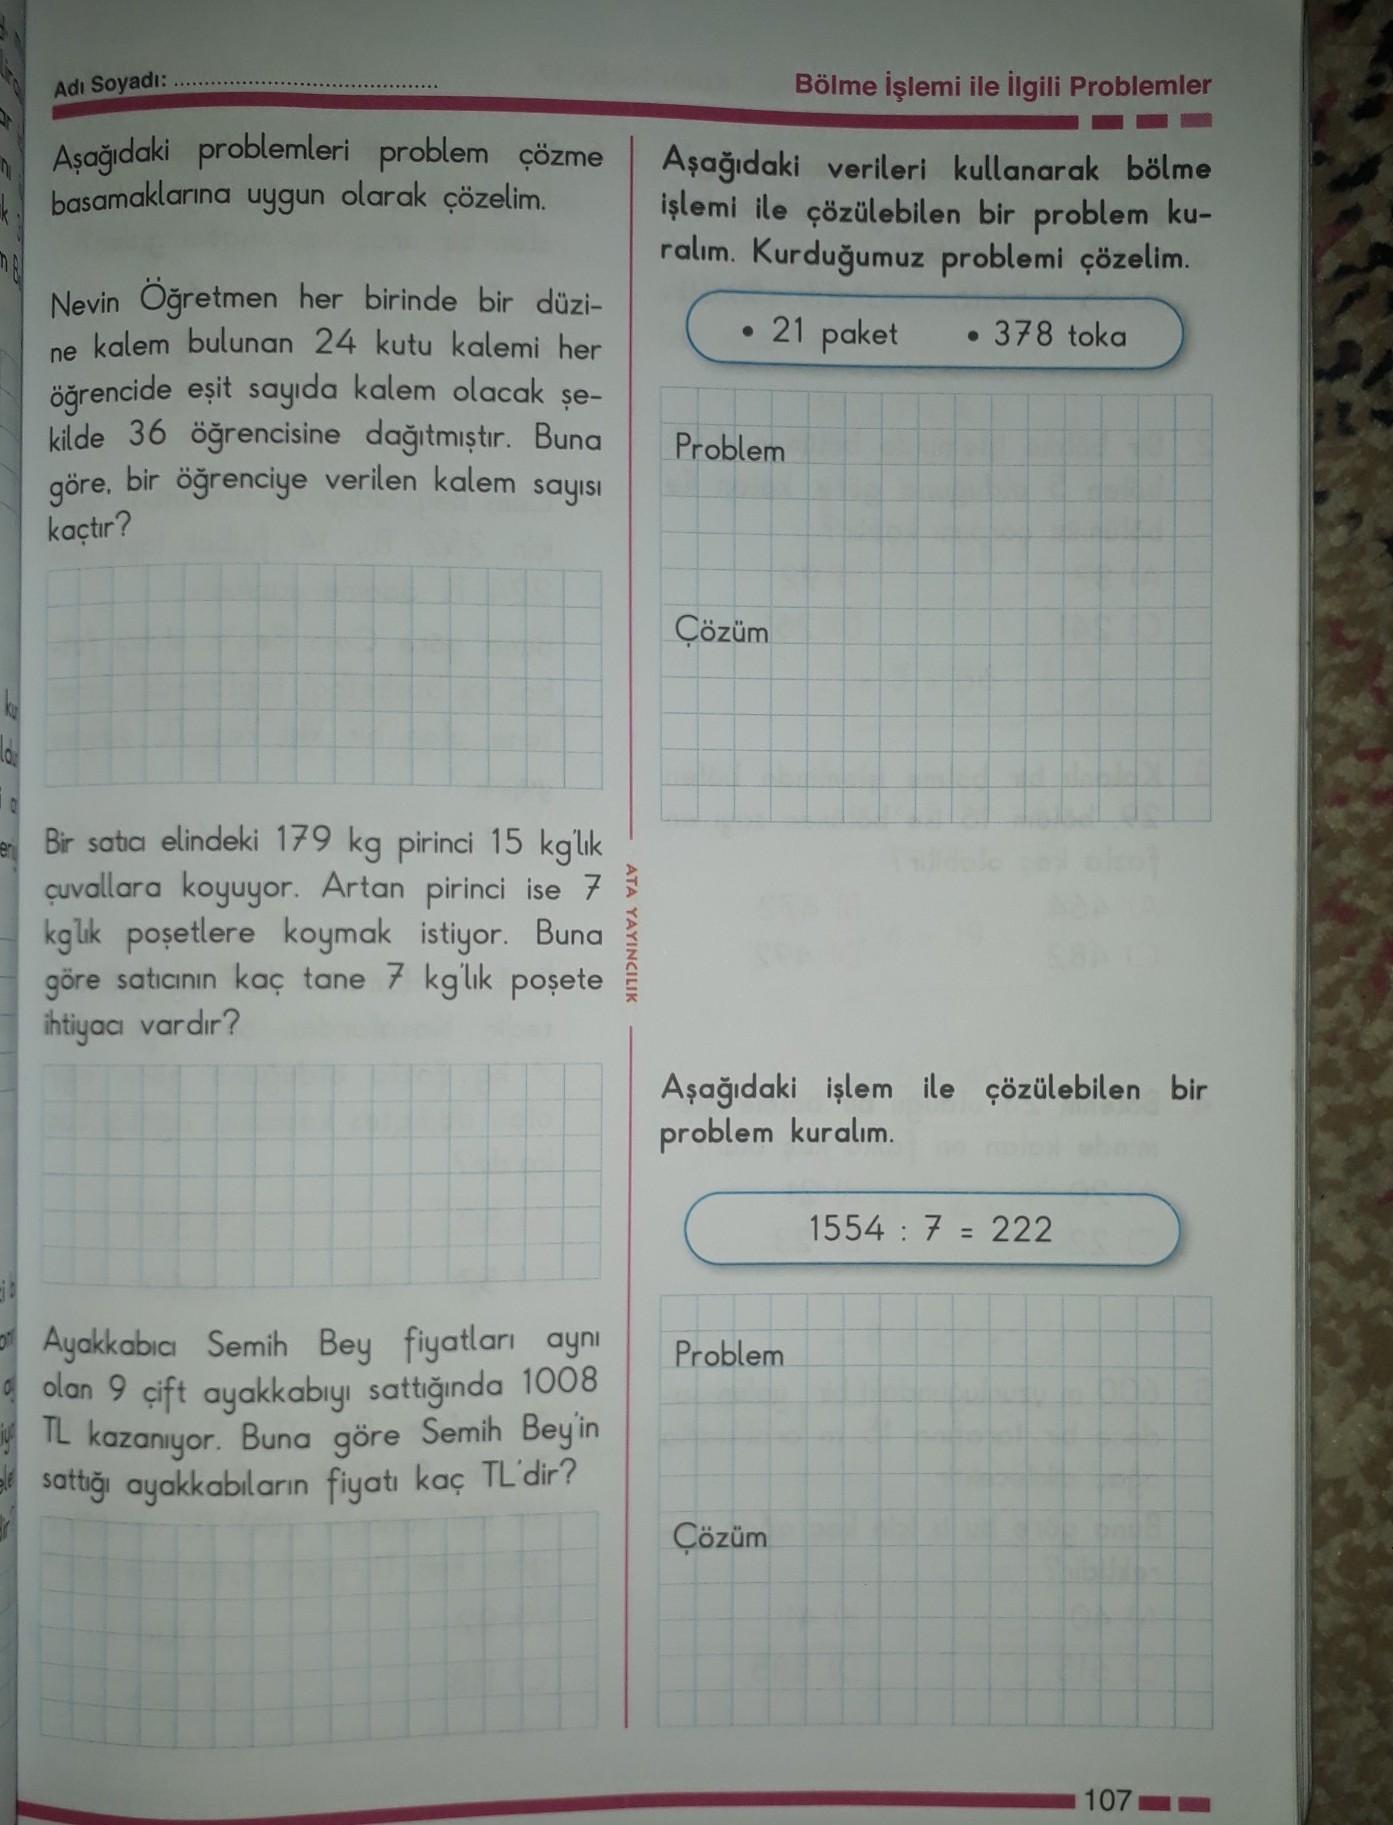 Adı Soyadı: ..........................................
Bölme İşlemi ile İlgili Problemler
Aşağıdaki problemleri problem çözme
basamaklarına uygun olarak çözelim.
Nevin Öğretmen her birinde bir düzi-
ne kalem bulunan 24 kutu kalemi her
öğrencide eşit sayıda kalem olacak şe-
kilde 36 öğrencisine dağıtmıştır. Buna
göre, bir öğrenciye verilen kalem sayısı
kaçtır?
Bir satıcı elindeki 179 kg pirinci 15 kg'lık
çuvallara koyuyor. Artan pirinci ise 7
kg'lık poşetlere koymak istiyor. Buna
göre satıcının kaç tane 7 kg'lık poşete
ihtiyacı vardır?
Ayakkabıcı Semih Bey fiyatları aynı
olan 9 çift ayakkabıyı sattığında 1008
TL kazanıyor. Buna göre Semih Bey'in
sattığı ayakkabıların fiyatı kaç TL'dir?
ATA YAYINCILIK
Aşağıdaki verileri kullanarak bölme
işlemi ile çözülebilen bir problem ku-
ralım. Kurduğumuz problemi çözelim.
• 21 paket • 378 toka
Problem
Çözüm
Aşağıdaki işlem ile çözülebilen bir
problem kuralım.
1554 : 7 = 222
Problem
Çözüm
107